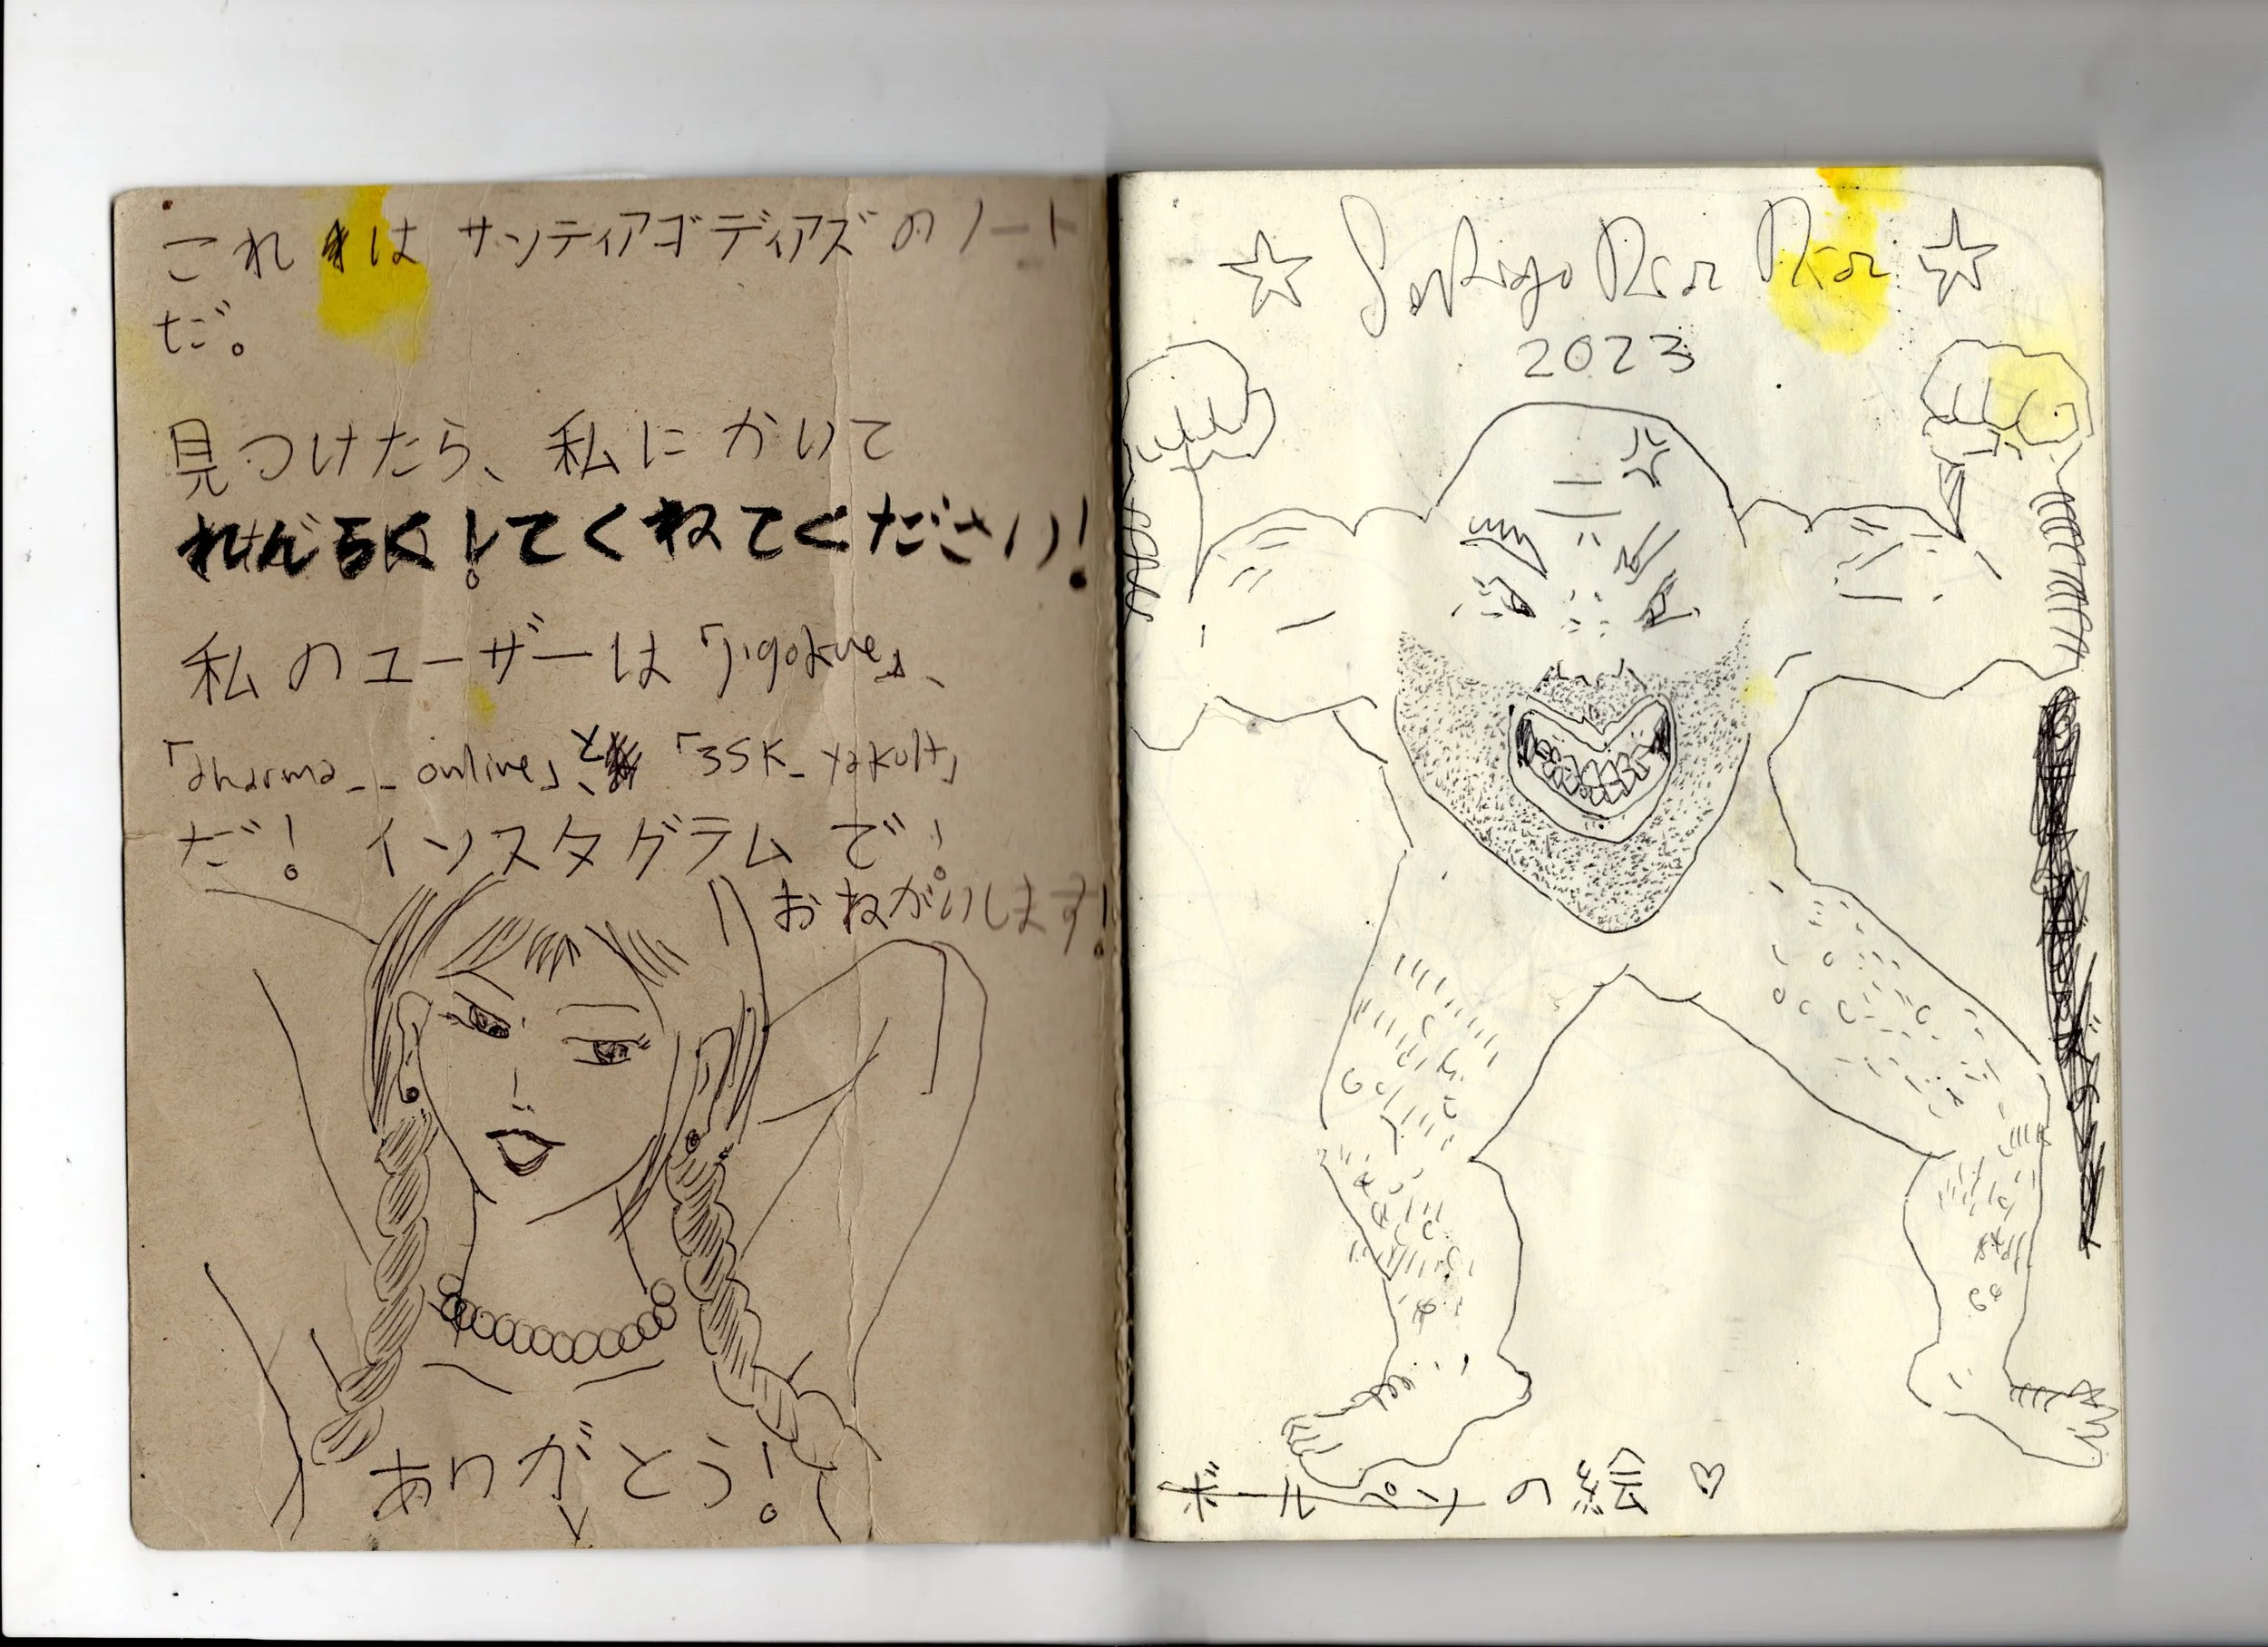 これは サンティアゴディアズのノート
だ。
見つけたら、私にかいて
れんらく!してくねてください!
私のユーザーは「jigokue」、
「dharma__online」と、「35K_yakult」
だ! インスタグラムで!
おねがいします!
ありがとう!
Santiago Diaz Diaz
2023
の絵♡